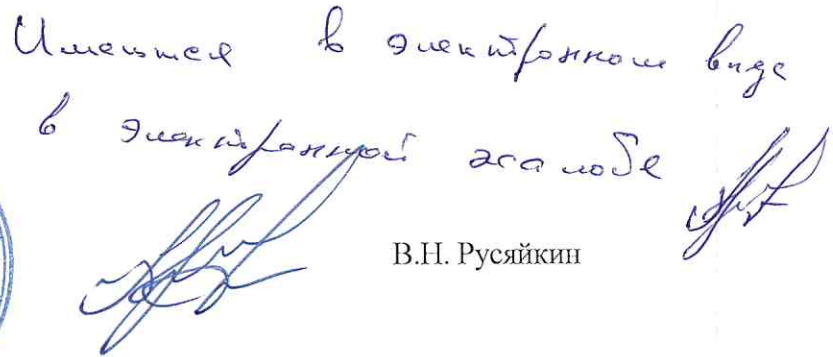 Имеется в электронном виде
в электронной жалобе
В.Н. Русяйкин